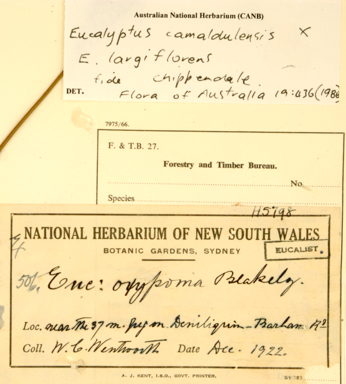 Australian National Herbarium (CANB)
Eucalyptus camaldulensis x
E. largiflorens
fide Chippendale
DET. Flora of Australia 19:436 (1988
7975/66.
F. & T.B. 27.
Forestry and Timber Bureau.
No.
Species
115798
NATIONAL HERBARIUM OF NEW SOUTH WALES
BOTANIC GARDENS, SYDNEY
EUCALIST.
Euc: oxypoma Blakely.
Loc. near the 37 m. peg on Deniliquin - Barham Rd
Coll. W. C. Wentworth Date Dec. 1922.
A. J. KENT, I.S.O., GOVT. PRINTER.